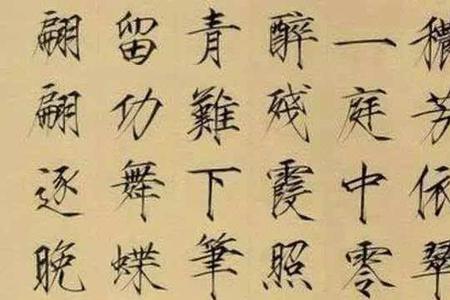 穠芳依翠
一庭中零
醉殘霞照
青難下筆
留功舞蝶
翩翩逐晚